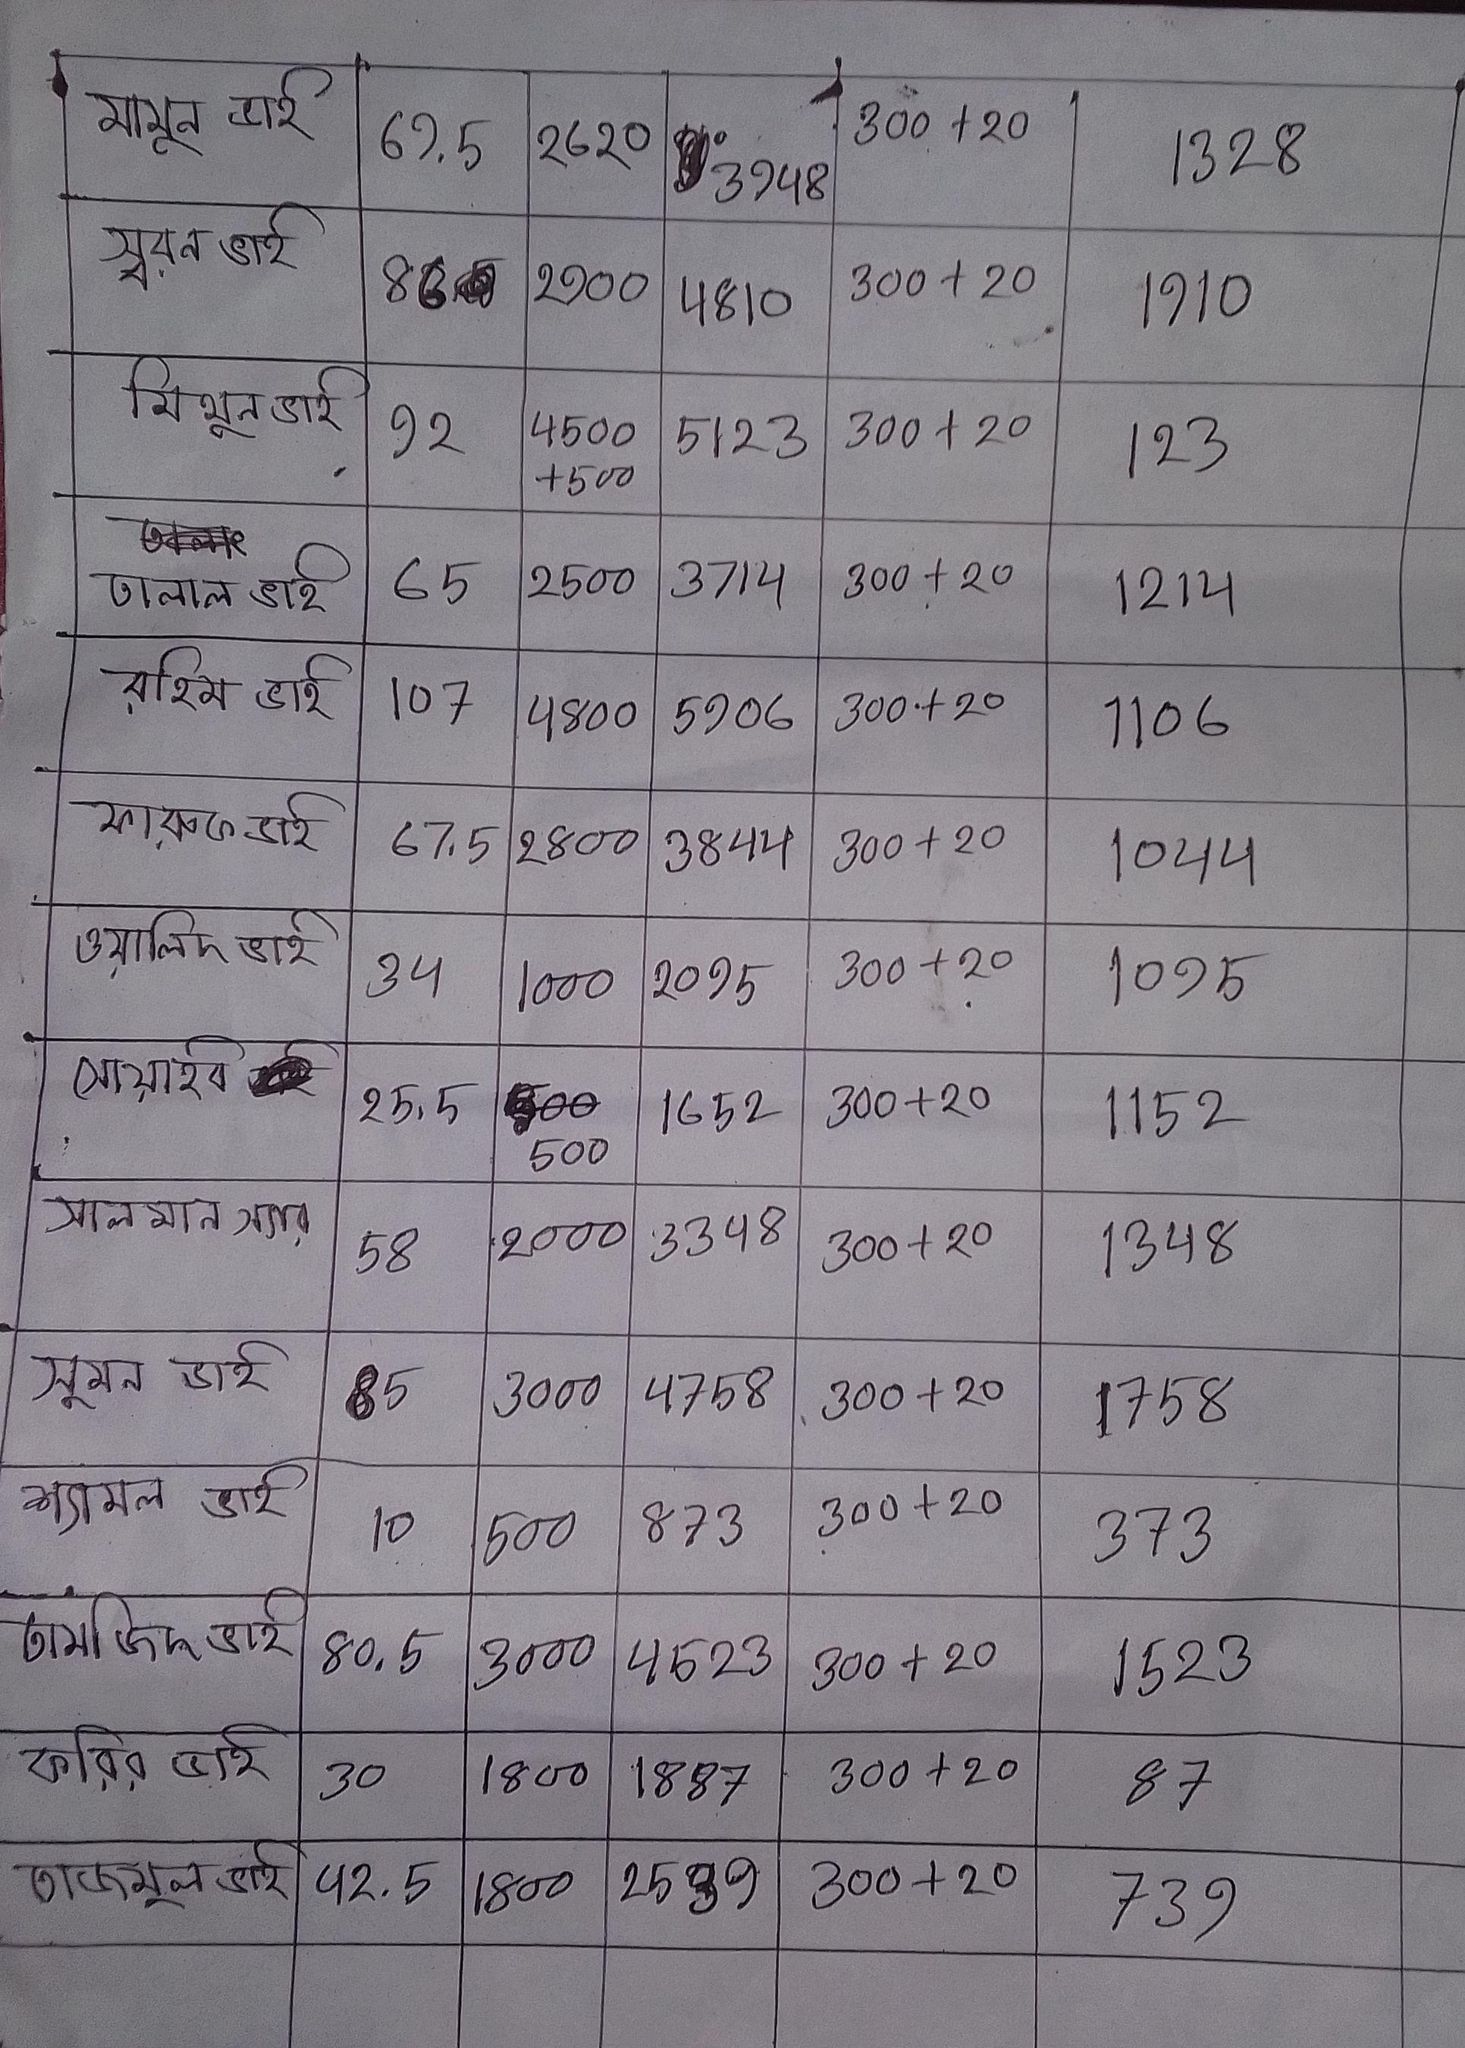 মামুন ভাই 69.5 2620 3948 300 + 20 1328
সুবরন ভাই 86 2900 4810 300 + 20 1910
মিথুন ভাই 92 4500 +500 5123 300 + 20 123
তালাল ভাই 65 2500 3714 300 + 20 1214
রহিম ভাই 107 4800 5906 300 + 20 1106
ফারুক ভাই 67.5 2800 3844 300 + 20 1044
ওয়ালিদ ভাই 34 1000 2095 300 + 20 1095
সোয়াইব 25.5 500 1652 300 + 20 1152
সালমান স্যার 58 2000 3348 300 + 20 1348
সুমন ভাই 85 3000 4758 300 + 20 1758
শ্যামল ভাই 10 500 873 300 + 20 373
তামজিদ ভাই 80.5 3000 4523 300 + 20 1523
ভাই 30 1800 1887 300 + 20 87
তাজমুল ভাই 42.5 1800 2539 300 + 20 739